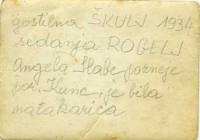 gostilna ŠKULJ 1934
sedanja ROGELJ
Angela Habe pozneje
por. Kunc, je bila
natakarica